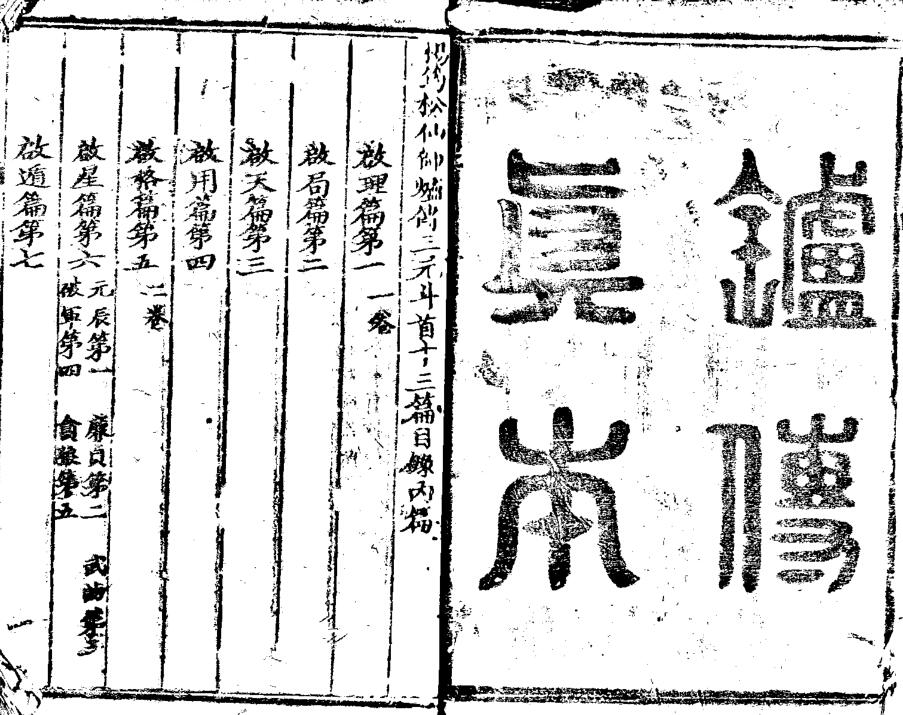 鑪傳
真本
楊筠松仙師爐傳三元斗首十三篇目錄内篇
啟理篇第一 一卷
啟局篇第二
啟天篇第三
啟用篇第四
啟格篇第五 二卷
啟星篇第六 元辰第一 廉貞第二 武曲第三 破軍第四 貪狼第五
啟遁篇第七